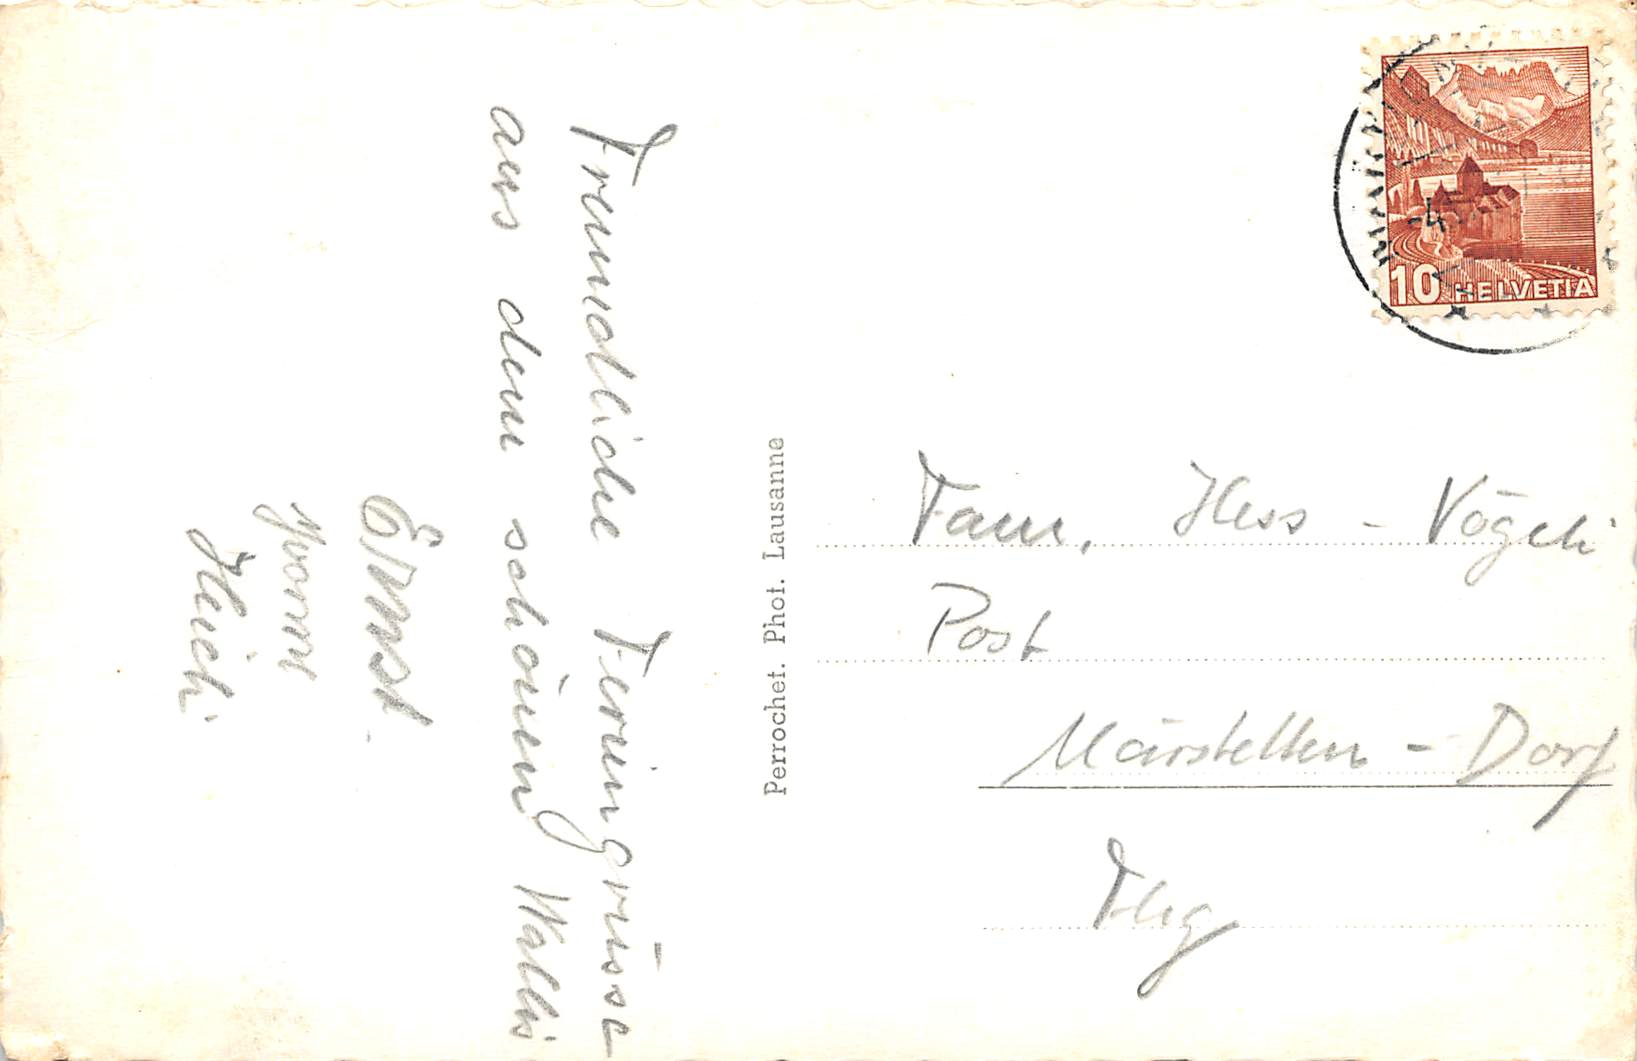 Freundliche Feriengrüsse
aus dem schönen Wallis
Ernst
Yvonne
Heidi
Perrochet. Phot. Lausanne
Fam. Hess - Vögeli
Post
Märstetten - Dorf
Thg
10 HELVETIA
-4